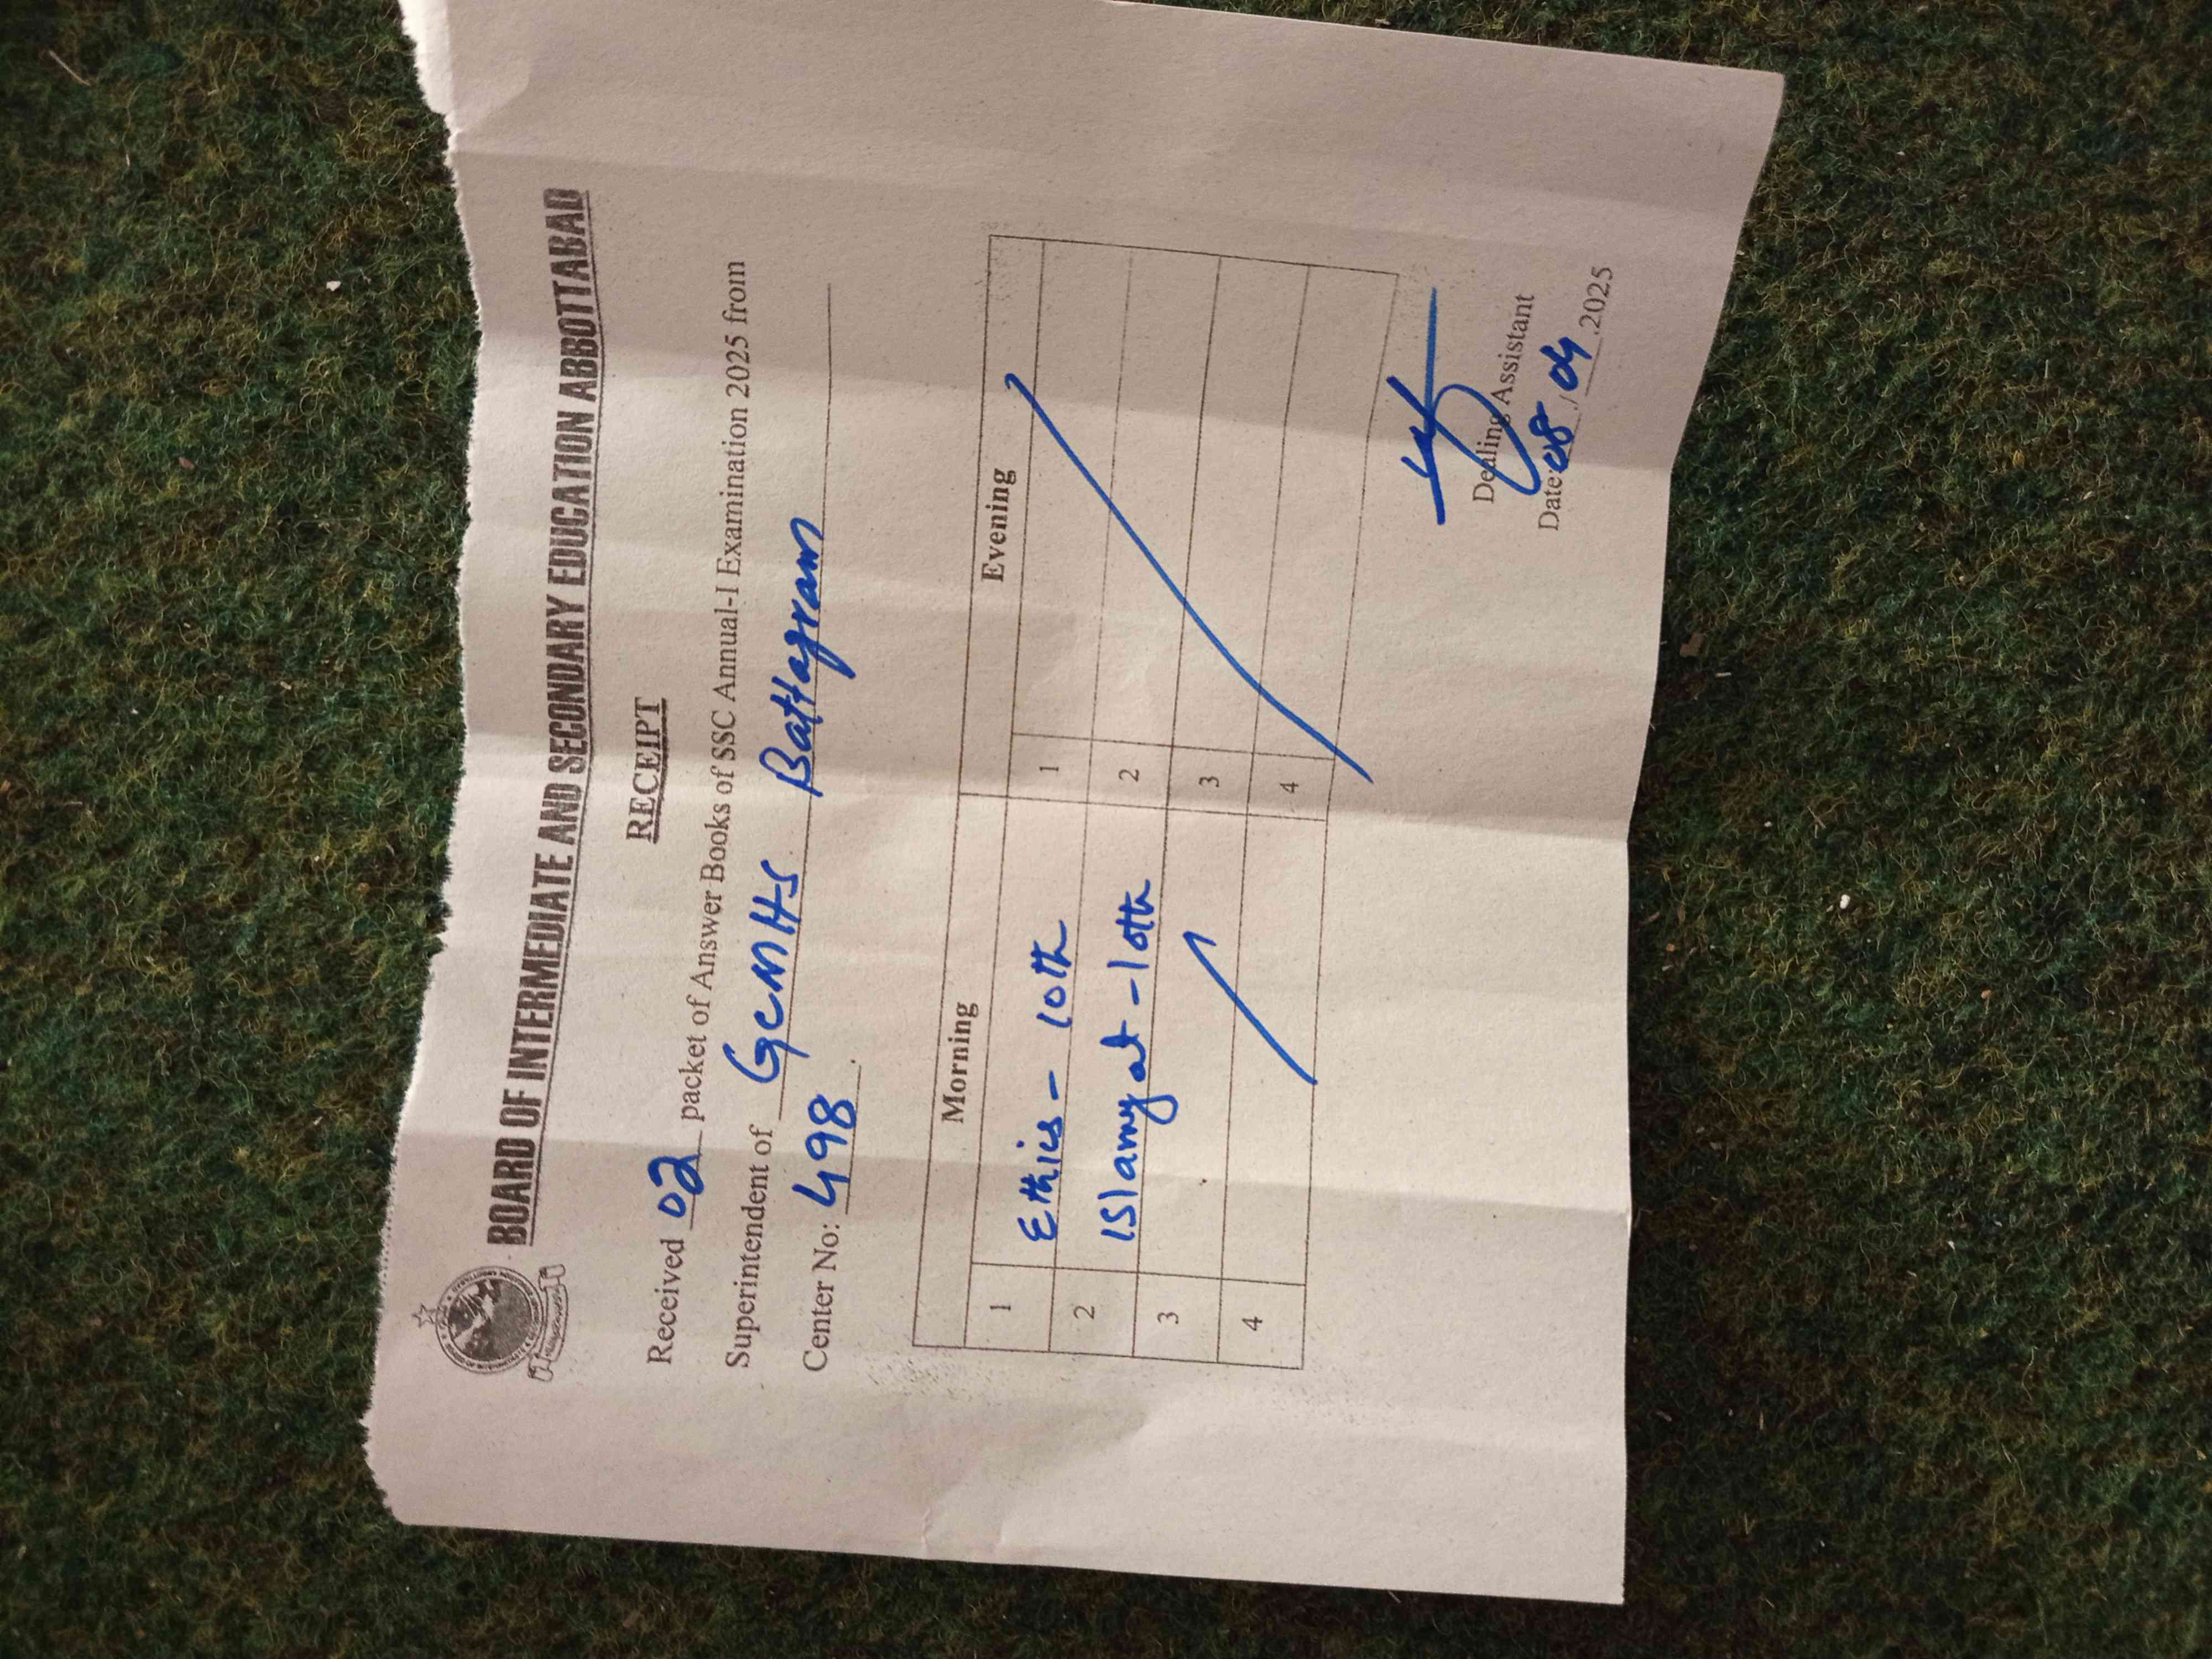 BOARD OF INTERMEDIATE AND SECONDARY EDUCATION ABBOTTABAD
RECEIPT
Received 02 packet of Answer Books of SSC Annual-I Examination 2025 from
Superintendent of GCMHS Battagram
Center No: 498.
Morning Evening
1 Ethics - 10th 1
2 Islamyat - 10th 2
3 3
4 4
Dealing Assistant
Date: 08/04.2025